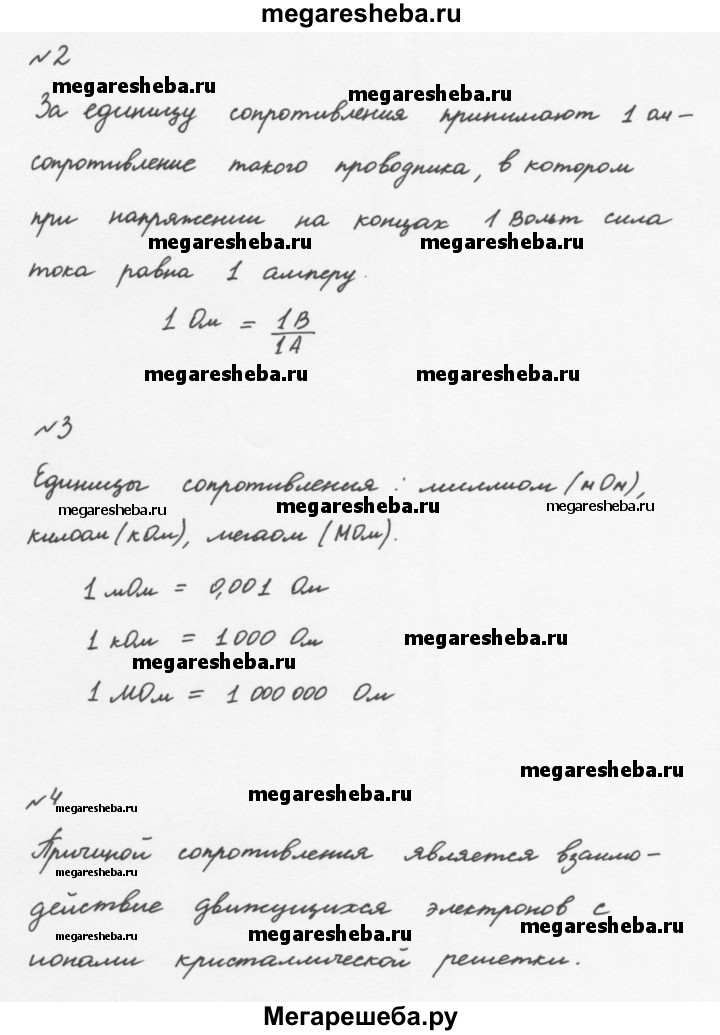 megaresheba.ru
№2
megaresheba.ru megaresheba.ru
За единицу сопротивления принимают 1 ом –
сопротивление такого проводника, в котором
при напряжении на концах 1 Вольт сила
megaresheba.ru megaresheba.ru
тока равна 1 амперу.
1 Ом = 1В/1А
megaresheba.ru megaresheba.ru
№3
Единицы сопротивления : миллиом (мОм),
megaresheba.ru megaresheba.ru megaresheba.ru
килоом (кОм), мегаом (МОм).
1 мОм = 0,001 Ом
1 кОм = 1000 Ом megaresheba.ru
megaresheba.ru
1 МОм = 1 000 000 Ом
megaresheba.ru
№4 megaresheba.ru
megaresheba.ru
Причиной сопротивления является взаимо-
megaresheba.ru
действие движущихся электронов с
megaresheba.ru megaresheba.ru megaresheba.ru
ионами кристаллической решетки.
Мегарешеба.ру